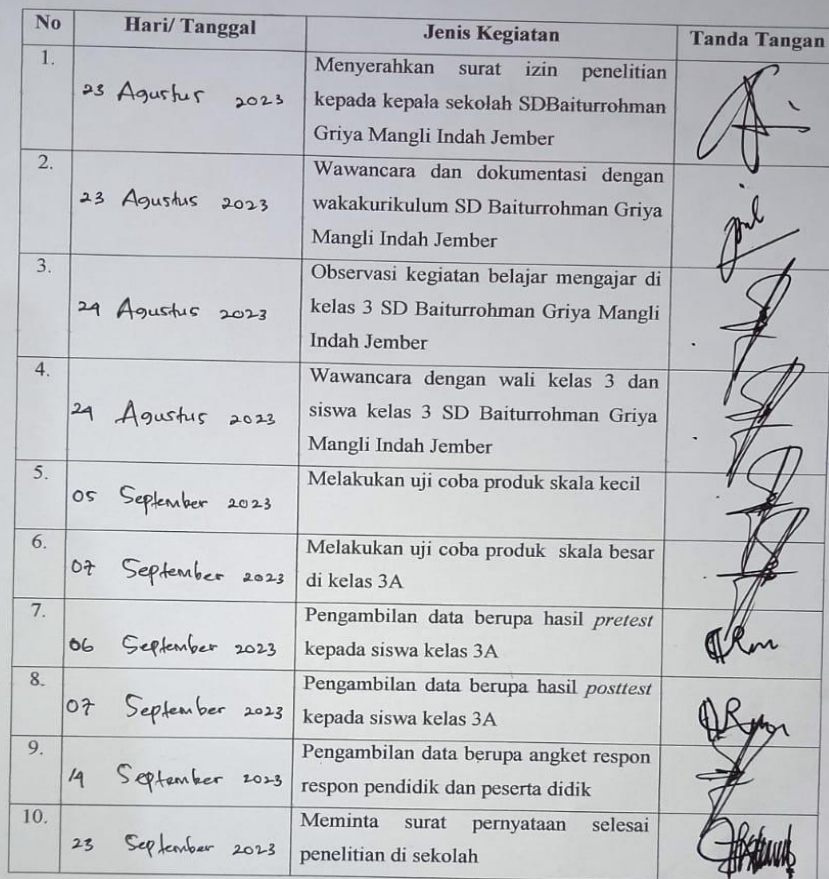 No Hari/ Tanggal Jenis Kegiatan Tanda Tangan
1. 23 Agustus 2023 Menyerahkan surat izin penelitian
kepada kepala sekolah SDBaiturrohman
Griya Mangli Indah Jember
2. 23 Agustus 2023 Wawancara dan dokumentasi dengan
wakakurikulum SD Baiturrohman Griya
Mangli Indah Jember
3. 24 Agustus 2023 Observasi kegiatan belajar mengajar di
kelas 3 SD Baiturrohman Griya Mangli
Indah Jember
4. 24 Agustus 2023 Wawancara dengan wali kelas 3 dan
siswa kelas 3 SD Baiturrohman Griya
Mangli Indah Jember
5. 05 September 2023 Melakukan uji coba produk skala kecil
6. 07 September 2023 Melakukan uji coba produk skala besar
di kelas 3A
7. 06 September 2023 Pengambilan data berupa hasil pretest
kepada siswa kelas 3A
8. 07 September 2023 Pengambilan data berupa hasil posttest
kepada siswa kelas 3A
9. 14 September 2023 Pengambilan data berupa angket respon
respon pendidik dan peserta didik
10. 23 September 2023 Meminta surat pernyataan selesai
penelitian di sekolah